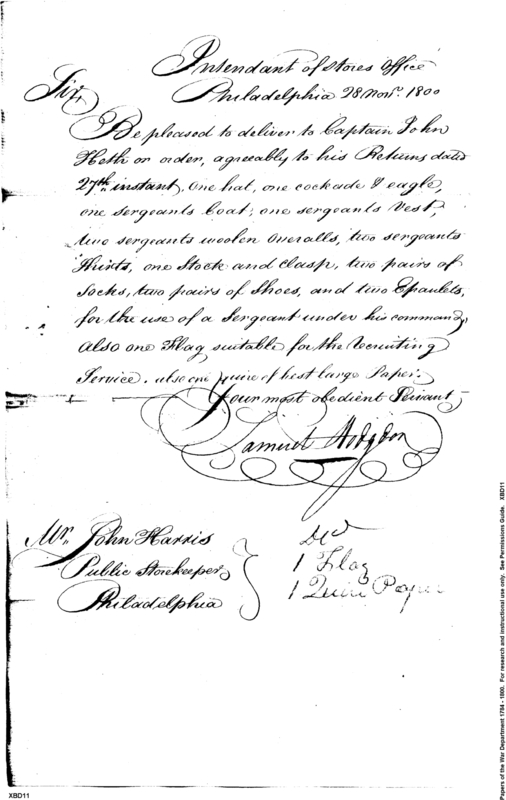 Intendant of Stores Office
Philadelphia 28 Novr. 1800
Sir,
Be pleased to deliver to Captain John
Heth or order, agreeably to his Return dated
27th. instant, one hat, one cockade & eagle,
one sergeants Coat, one sergeants Vest,
two sergeants woolen Overalls, two sergeants
Shirts, one Stock and Clasp, two pairs of
Socks, two pairs of Shoes, and two Epaulets,
for the use of a Sergeant under his command,
also one Flag suitable for the recruiting
Service. also one quire of best large Paper.
Your most obedient Servant,
Samuel Hodgdon
Mr. John Harris
Public Storekeeper
Philadelphia
Dd
1 Flag
1 Quire Paper
Papers of the War Department 1784 - 1800. For research and instructional use only. See Permissions Guide. XBD11
XBD11